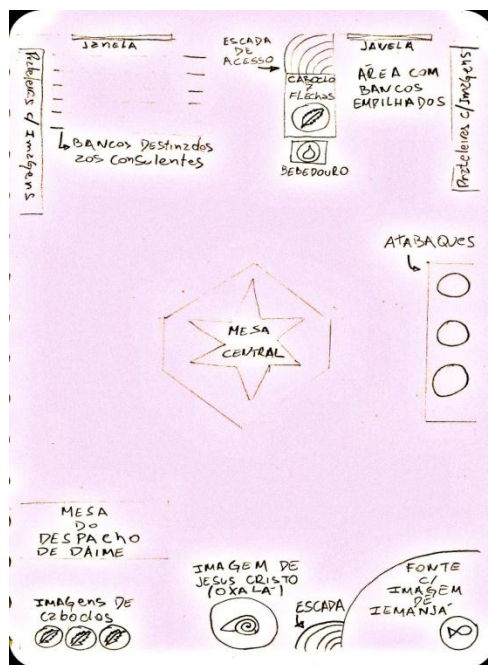 JANELA
ESCADA
DE
ACESSO
JANELA
Prateleiras c/ Imagens
CABOCLO
7
FLECHAS
ÁREA COM
BANCOS
EMPILHADOS
Prateleiras c/ Imagens
BANCOS DESTINADOS
AOS CONSULENTES
BEBEDOURO
ATABAQUES
MESA
CENTRAL
MESA
DO
DESPACHO
DE DAIME
IMAGEM DE
JESUS CRISTO
(OXALÁ)
FONTE
C/
IMAGEM
DE
IEMANJÁ
IMAGENS DE
CABOCLOS
ESCADA